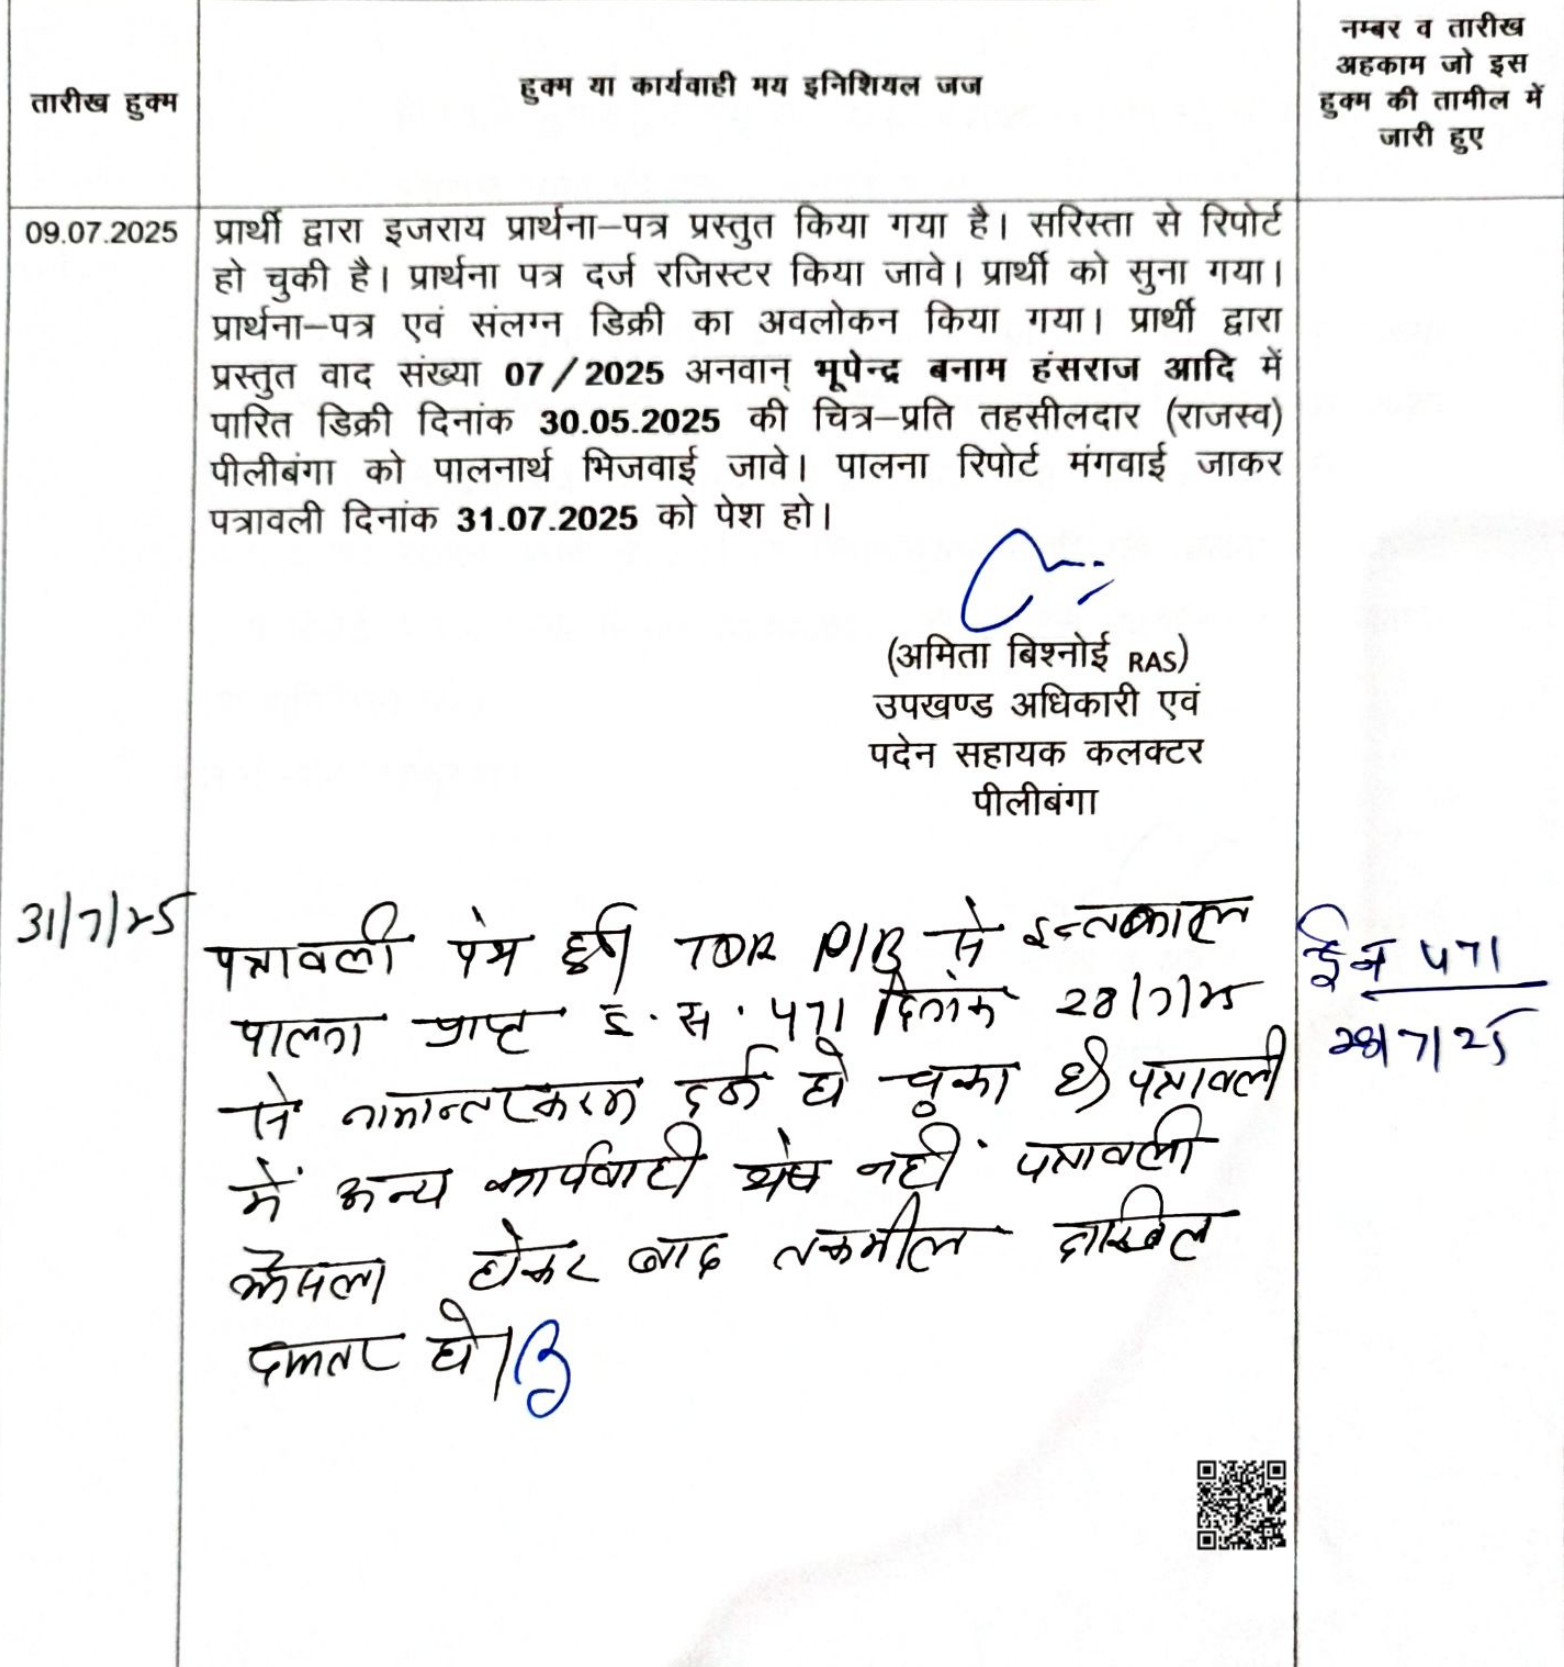 तारीख हुक्म
हुक्म या कार्यवाही मय इनिशियल जज
नम्बर व तारीख
अहकाम जो इस
हुक्म की तामील में
जारी हुए
09.07.2025
प्रार्थी द्वारा इजराय प्रार्थना–पत्र प्रस्तुत किया गया है। सरिस्ता से रिपोर्ट
हो चुकी है। प्रार्थना पत्र दर्ज रजिस्टर किया जावे। प्रार्थी को सुना गया।
प्रार्थना–पत्र एवं संलग्न डिक्री का अवलोकन किया गया। प्रार्थी द्वारा
प्रस्तुत वाद संख्या 07/2025 अनवान् भूपेन्द्र बनाम हंसराज आदि में
पारित डिक्री दिनांक 30.05.2025 की चित्र–प्रति तहसीलदार (राजस्व)
पीलीबंगा को पालनार्थ भिजवाई जावे। पालना रिपोर्ट मंगवाई जाकर
पत्रावली दिनांक 31.07.2025 को पेश हो।
(अमिता बिश्नोई RAS)
उपखण्ड अधिकारी एवं
पदेन सहायक कलक्टर
पीलीबंगा
31/7/25
पत्रावली पेश हुई TDR P/B से इन्तकाल
पालना प्राप्त इ. स. 471 दिनांक 28/7/25
से नामान्तरकरण दर्ज हो चुका है। पत्रावली
में अन्य कार्यवाही शेष नहीं पत्रावली
फैसला होकर बाद तकमील दाखिल
दफ्तर हो।
471
28/7/25